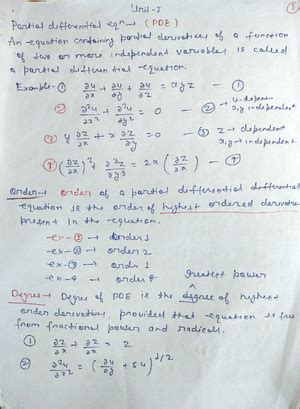 Unit-I
Partial differential eqn → (PDE)
An equation containing partial derivatives of a function
of two or more independent variables is called
a partial differential equation.
Example- ① ∂u/∂x + ∂u/∂y + ∂u/∂z = xyz — ①
② ∂²u/∂x² + ∂²u/∂y² = 0 — ② u-depent x,y independent
③ y ∂z/∂x + x ∂z/∂y = 0 — ③ z → dependent x,y → independent.
④ (∂z/∂x)² + ∂³z/∂y³ = 2x (∂z/∂x) — ④
Order → order of a partial differential differential
equation is the order of highest ordered derivative
present in the equation.
ex-① → order 1
ex-② → order 2
ex-③ → order 1
ex-④ → order
greatest power
Degree → Degree of PDE is the degree of highest
order derivative, provided that equation is free
from fractional power and radicals.
① ∂z/∂x + ∂z/∂x = 2
② ∂²u/∂x² = (∂u/∂y + 5u)^1/2